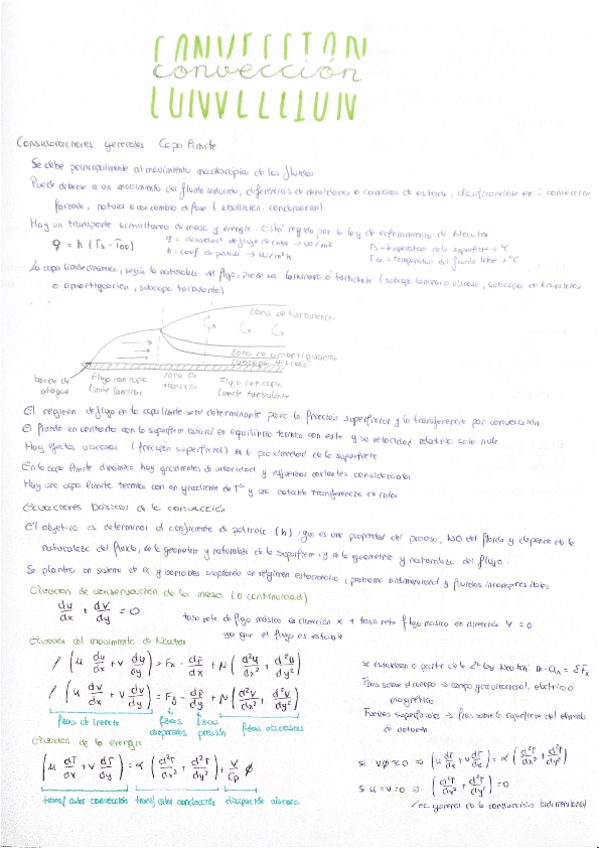 CONVECCION
convección
Consideraciones generales Capa límite
Se debe principalmente al movimiento macroscópico de los fluidos
Puede deberse a un movimiento del fluido inducido, diferencias de densidades o cambios de estado, clasificándose en: convección
forzada, natural o con cambio de fase (ebullición, condensación)
Hay un transporte simultáneo de masa y energía. Está regido por la ley de enfriamiento de Newton
q = h (Ts - T∞)
q = densidad de flujo de calor → W/m²
h = coef de película → W/m²K
Ts = temperatura de la superficie → °C
T∞ = temperatura del fluido libre → °C
La capa límite dinámica, según la naturaleza del flujo, puede ser laminar o turbulenta (subcapa laminar o viscosa, subcapa de transición
o amortiguación, subcapa turbulenta)
zona de turbulencia
zona de amortiguación
subcapa viscosa
borde de
ataque
Flujo con capa
límite laminar
zona de
transición
Flujo con capa
límite turbulenta
El régimen de flujo en la capa límite será determinante para la fricción superficial y la transferencia por convección
El fluido en contacto con la superficie estará en equilibrio térmico con este y su velocidad relativa será nula
Hay efectos viscosos (fricción superficial) en la proximidad de la superficie
En la capa límite dinámica hay gradientes de velocidad y esfuerzos cortantes considerables
Hay una capa límite térmica con un gradiente de Tª y una notable transferencia de calor
Ecuaciones básicas de la convección
El objetivo es determinar el coeficiente de película (h), que es una propiedad del proceso, NO del fluido y depende de la
naturaleza del fluido, de la geometría y naturaleza de la superficie, y de la geometría y naturaleza del flujo.
Se plantea un sistema de ec y variables adoptando un régimen estacionario, problema bidimensional y fluidos incompresibles
Ecuación de conservación de la masa (o continuidad)
du/dx + dv/dy = 0
tasa neta de flujo másico en dirección x + tasa neta flujo másico en dirección y = 0
ya que el flujo es estable
Ecuación del movimiento de Newton
ρ (u du/dx + v du/dy) = Fx - dp/dx + μ (d²u/dx² + d²u/dy²)
ρ (u dv/dx + v dv/dy) = Fy - dp/dy + μ (d²v/dx² + d²v/dy²)
fzas de inercia
fzas
fzas
presión
fzas viscosas
se establecen a partir de la 2ª ley Newton: m·an = ΣFx
Fzas sobre el cuerpo → campo gravitacional, eléctrico o
magnético
Fuerzas superficiales → fzas sobre la superficie del elemento
de volumen
Ecuación de la energía
(u dT/dx + v dT/dy) = α (d²T/dx² + d²T/dy²) + v/Cp φ
transf calor convección
transf calor conducción
disipación viscosa
si vφ≈0 ⇒ (u dT/dx + v dT/dy) = α (d²T/dx² + d²T/dy²)
si u = v = 0 ⇒ (d²T/dx² + d²T/dy²) = 0
ec general de la conducción bidimensional